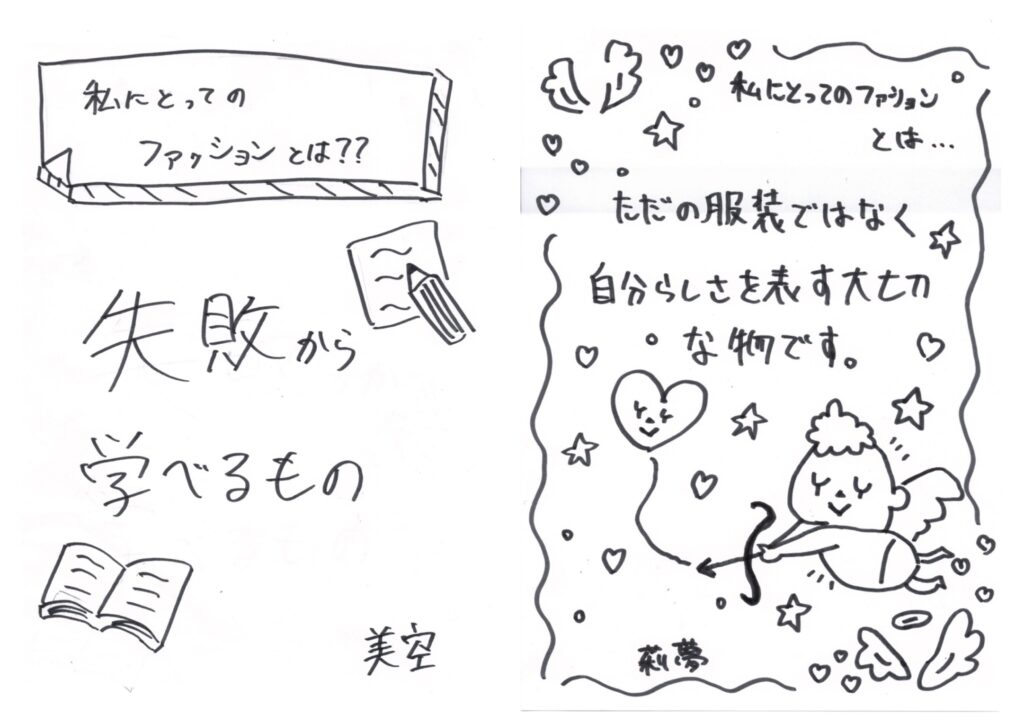 私にとっての
ファッションとは??
失敗から
学べるもの
美空
私にとってのファッション
とは...
ただの服装ではなく
自分らしさを表す大切
な物です。
莉夢